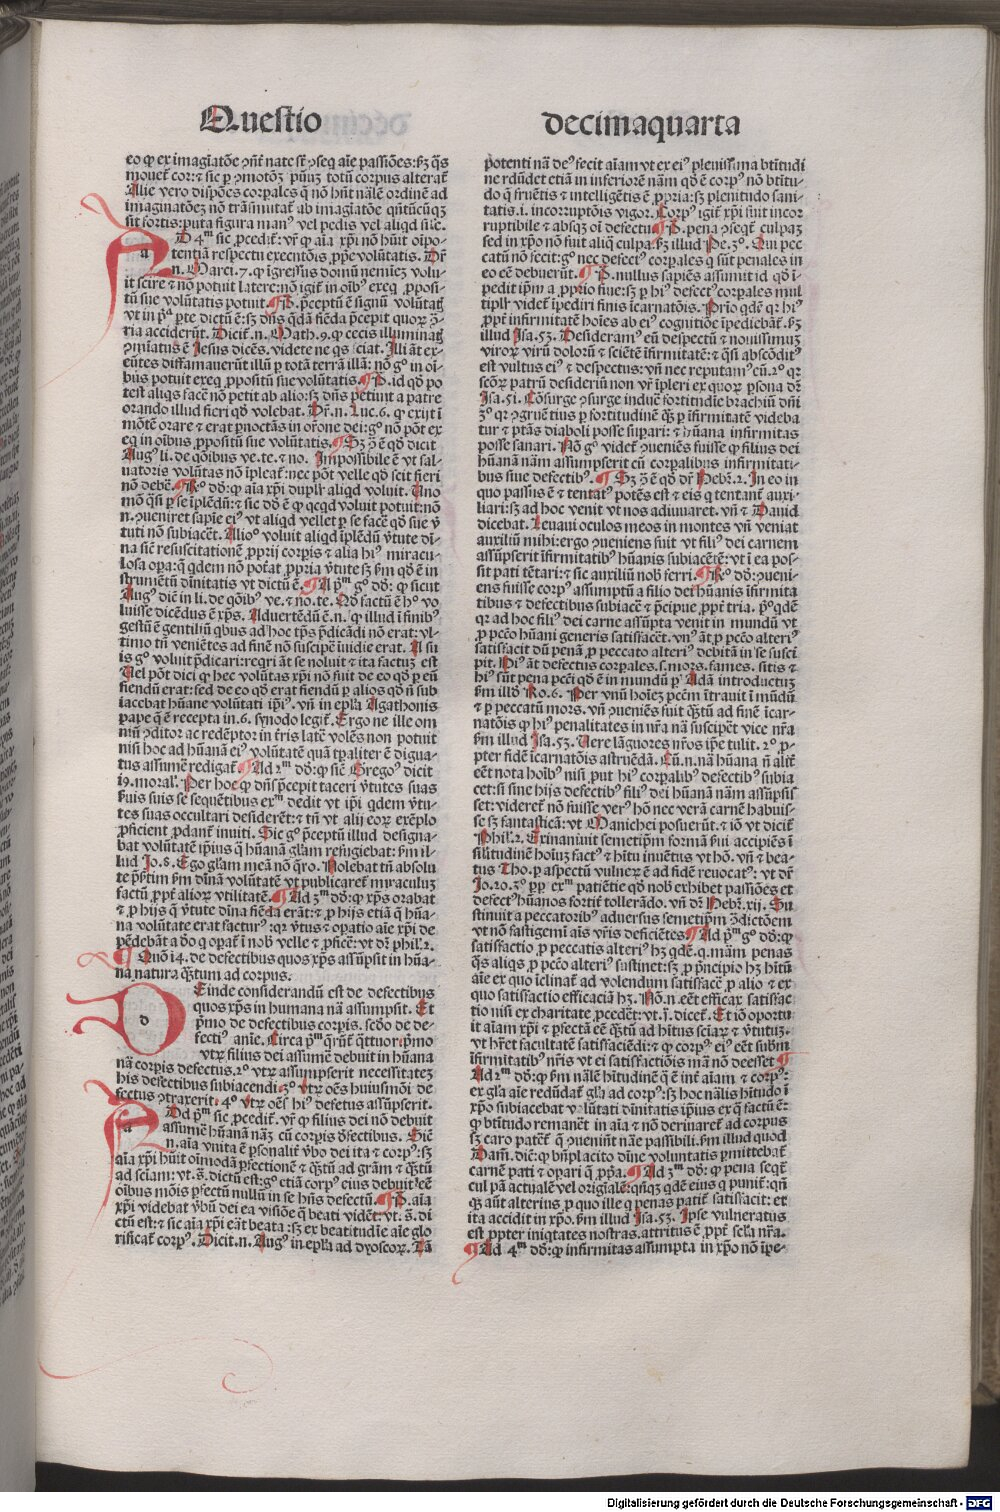 Questio decimaquarta
eo ꝙ ex imagiatōe ꝯñt nate sūt ↄseq aīe passiões: sꝫ q̃s
mouet᷑ cor: ⁊ sic ꝑ ↄmotōꝫ pͥmuꝫ totū corpus alterat᷑
Alie vero dispōes corpales q̃ nō hñt nālē ordinē ad
imaginatōeꝫ nō trāsmutāt᷑ ab imagiatōe q̃ntūcūqꝫ
sit fortis: puta figura manꝰ vel pedis vel aliqd sil̃e.
AD 4ᵐ sic ꝓcedit᷑: vr̃ ꝙ aīa xp̄i nō hūit oīpo-
tentiā respectu executōis ꝓpͥe volūtatis. Dr̃
.n. Marci.7. ꝙ īgressus domū neminēꝫ volu-
it scire ⁊ nō potuit latere: nō igit᷑ in oībꝰ exeq̃ ꝓposi-
tū sue volūtatis potuit. ¶P. p̄ceptū ē signū volūtatꝭ
vt in pͥª ꝑte dictū ē: sꝫ dn̄s q̄dā fiēda p̄cepit quoꝝ ꝯ̄-
ria acciderūt. Dicit᷑.n. Math.9. ꝙ cecis illuminatꝭ
ↄminatus ē Jesus dicēs. videte ne qͥs sciat. Illi āt ex-
eūtes diffamauerūt illū ꝑ totā terrā illā: nō gͦ in oī-
bus potuit exeq̃ ꝓpositū sue volūtatis. ¶P. id qd̄ po
test aliqͥs facē nō petit ab alio: sꝫ dn̄s petiuit a patre
orando illud fieri qd̄ volebat. Dr̃.n. Luc.6. ꝙ exijt ī
mōtē orare ⁊ erat ꝑnoctās in or̄one dei: gͦ nō pōt ex
eq̃ in oībus ꝓpositū sue volūtatis. ¶Sꝫ ꝯ̄ ē qd̄ dicit
Augꝰ li. de q̄oībus ve. te. ⁊ no. Impossibile ē vt sal-
uatoris volūtas nō īpleat᷑: nec pōt velle qd̄ scit fieri
nō debē. ¶Rͦ dd̄: ꝙ aīa xp̄i duplr̄ aliqd voluit. Uno
mō q̄si ꝑ se īplēdū: ⁊ sic dd̄ ē ꝙ qcqd voluit potuit: nō
.n. ↄueniret sapīe eiꝰ vt aliqd vellet ꝑ se facē qd̄ sue v̓
tuti nō subiacēt. Alioͦ voluit aliqd īplēdū v̓tute di-
na sic̄ resuscitationē ꝓprij corpis ⁊ alia hiꝰ miracu-
losa oꝑa: q̄ qdem nō poťat ꝓpria v̓tute sꝫ ẜm qd̄ ē in
strumētū dīnitatis vt dictū ē. ¶Ad pͥᵐ gͦ dd̄: ꝙ sicut
Augꝰ dic̄ in li. de q̄oībꝰ ve. ⁊ no. te. Qd̄ factū ē hͦ vo
luisse dicēdus ē xp̄s. Aduertēdū ē.n. ꝙ illud ī finibꝰ
gestū ē gentiliū qͥbus ad hoc tp̄s p̄dicādi nō erat: vl-
timo tn̄ veniētes ad finē nō suscipē iuidie erat. A su
is gͦ voluit p̄dicari: reqri āt se noluit ⁊ ita factuꝫ est
Uel pōt dici ꝙ hec volūtas xp̄i nō fuit de eo qd̄ ꝑ eū
fiendū erat: sed de eo qd̄ erat fiendū ꝑ alios qd̄ ñ sub
iacebat hūane volūtati ip̄iꝰ. vñ in ep̄la Agathonis
pape q̄ ē recepta in.6. synodo legit᷑. Ergo ne ille om
niū ↄditor ac redēptor in t̓ris latē volēs non potuit
nisi hoc ad hūanā eiꝰ volūtatē quā tꝑaliter ē digna-
tus assumē redigat᷑. ¶Ad 2ᵐ dd̄: ꝙ sic̄ Gregoꝰ dicit
19. moral̓. Per hoc ꝙ dn̄s p̄cepit taceri v̓tutes suas
ẜuis suis se sequētibus exᵐ dedit vt ip̄i qdem v̓tu-
tes suas occultari desiderēt: ⁊ tn̄ vt alij eoꝝ exēplo
ꝓficient ꝓdant᷑ inuiti. Sic gͦ p̄ceptū illud designa-
bat volūtatē ip̄ius q̄ hūanā gl̄am refugiebat: ẜm il-
lud Jo.8. Ego gl̄am meā nō q̄ro. Uolebat tn̄ absolu
te p̄s̓tim ẜm dīnā volūtatē vt publicaret᷑ miraculuꝫ
factū ꝓpt̓ alioꝝ vtilitatē. ¶Ad 3ᵐ dd̄: ꝙ xp̄s orabat
⁊ ꝓ hijs q̄ v̓tute dīna fiēda erāt: ⁊ ꝓ hijs etiā q̄ hūa-
na volūtate erat facturꝰ: qr v̓tus ⁊ oꝑatio aīe xp̄i de
pēdebāt a deo q̄ oꝑat᷑ ī nob̓ velle ⁊ ꝑficē: vt dr̃ phil̓.2.
¶ Quō 14. de defectibus quos xp̄s assūpsit in hūa-
na natura q̄ꝫtum ad corpus.
DEinde considerandū est de defectibus
quos xp̄s in humana nā assumpsit. Et
pͥmo de defectibus corpis. scd̄o de de-
fectiꝰ anie. Circa pͥᵐ q̄rūt᷑ q̄ttuor. pͥmo
vtꝝ filius dei assumē debuit in hūana
nā corpis defectus. 2ͦ vtꝝ assumpserit necessitatez
his defectibus subiacendi. 3ͦ vtꝝ oēs huiusmōi de
fectus ↄtraxerit. 4ͦ vtꝝ oēs hiꝰ defetus assūpserit.
AD pͥᵐ sic ꝓcedit᷑. vr̃ ꝙ filius dei nō debuit
assumē hūanā nāꝫ cū corpis d̓fectibus. Sic̄
.n. aīa vnita ē ꝑsonalit̓ v̓bo dei ita ⁊ corpꝰ: sꝫ
aīa xp̄i hūit oīmodā ꝑfectionē ⁊ q̄ꝫtū ad gr̄am ⁊ q̄ꝫtū
ad sciam: vt. s̓. dictū est: gͦ etiā corpꝰ eius debuit eē
oībus mōis ꝑfectū nullū in se hn̄s defectū. ¶P. aīa
xp̄i videbat v̓bū dei ea visiōe q̄ beati vidēt: vt. s̓. di
ctū est: ⁊ sic aīa xp̄i eāt beata: sꝫ ex beatitudīe aīe glo
rificat᷑ corpꝰ. Dicit.n. Augꝰ in ep̄la ad dyoscorꝝ. Tā
potenti nā deꝰ fecit aīam vt ex eiꝰ plenissima btītudi
ne rdūdet etiā in inferiorē nām qd̄ ē corpꝰ nō btītu-
do q̄ fruētis ⁊ intelligētis ē ꝓpria: sꝫ plenitudo sani-
tatis. i. incorruptōis vigor. Corpꝰ igit᷑ xp̄i fuit incor
ruptibile ⁊ absqꝫ oī defectu. ¶P. pena ↄseqt᷑ culpaꝫ
sed in xp̄o nō fuit aliq̄ culpa. ẜm illud Pe.3ͦ. Qui pec
catū nō fecit: gͦ nec defectꝰ corpales q̄ sūt penales in
eo eē debuerūt. ¶P. nullus sapiēs assumit id qd̄ ī-
pedit ip̄m a ꝓprio fine: sꝫ ꝑ hiꝰ defectꝰ corpales mul
tiplr̄ videt᷑ īpediri finis īcarnatōis. Prīo qdē qr hiꝰ
ꝓpt̓ infirmitatē hoīes ab eiꝰ cognitiōe īpediebāt᷑. ẜm
illud Isa.53. Desideramꝰ eū despectū ⁊ nouissimuꝫ
viroꝝ virū dolorū ⁊ sciētē īfirmitatē: ⁊ q̄si abscōditꝰ
est vultus eiꝰ ⁊ despectus: vñ nec reputamꝰ eū. 2ͦ qr
scōꝝ patrū desideriū non vr̃ īpleri ex quoꝝ ꝑsona dr̃
Isa.51. Cōsurge ↄsurge induē fortitudīe brachiū dn̄i
3ͦ qr ↄgruētius ꝑ fortitudinē q̄ꝫ ꝑ īfirmitatē videba
tur ⁊ p̄tās diaboli posse supari: ⁊ hūana infirmitas
posse sanari. Nō gͦ videt᷑ ↄueniēs fuisse ꝙ filius dei
hūanā nām assumpserit cū corpalibus infirmitati-
bus siue defectibꝰ. ¶Sꝫ ꝯ̄ ē qd̄ dr̃ Hebr̄.2. In eo in
quo passus ē ⁊ tentatꝰ potēs est ⁊ eis q̄ tentant᷑ auxi-
liari: sꝫ ad hoc venit vt nos adiuuaret. vñ ⁊ Dauid
dicebat. Leuaui oculos meos in montes vñ veniat
auxiliū mihi: ergo ↄueniens fuit vt filiꝰ dei carnem
assūpserit īfirmitatibꝰ hūanis subiacētē: vt ī ea pos-
sit pati tētari: ⁊ sic auxiliū nob̓ ferri. ¶Rͦ dd̄: ↄueni-
ens fuisse corpꝰ assumptū a filio dei hūanis īfirmita
tibus ⁊ defectibus subiacē ⁊ p̄cipue ꝓpt̓ tria. pͥͦ qdē
qr ad hoc filiꝰ dei carne assūpta venit in mundū vt
ꝓ pctō hūani generis satisfacēt. vnꝰ āt ꝓ pctō alteriꝰ
satisfacit dū penā ꝓ peccato alteriꝰ debitā in se susci
pit. Hiꝰ āt defectus corpales. s. mors. fames. sitis ⁊
hiꝰ sūt pena pctī qd̄ ē in mundū ꝑ Adā introductuꝫ
ẜm illd̄ Ro.6. Per vnū hoīeꝫ pctm̄ ītrauit ī mūdū
⁊ ꝑ peccatū mors. vñ ↄueniēs fuit q̄ꝫtū ad finē īcar-
natōis ꝙ hiꝰ penalitates in nr̄a nā susciꝑet vice nr̄a
ẜm illud Isa.53. Uere lāguores nr̄os ip̄e tulit. 2ͦ ꝓ-
pter fidē īcarnatōis astruēdā. Cū.n. nā hūana ñ alit̓
eēt nota hoībꝰ nisi put hiꝰ corpalibꝰ defectibꝰ subia
cet: si sine hijs defectibꝰ filiꝰ dei hūanā nām assūpsis
set: videret᷑ nō fuisse verꝰ hō nec verā carnē habuis-
se sꝫ fantasticā: vt Manichei posuerūt. ⁊ iō vt dicit᷑
Phil̓.2. Exinaniuit semetip̄m formā ẜui accipiēs ī
sil̓itudinē hoīuꝫ factꝰ ⁊ hītu inuētus vt hō. vñ ⁊ bea-
tus Tho. ꝑ aspectū vulnerꝝ ē ad fidē reuocatꝰ: vt dr̃
Jo.20. 3ͦ ꝓpt̓ exᵐ patiētie qd̄ nob̓ exhibet passiōes et
defectꝰ hūanos fortit̓ tollerādo. vñ dr̃ Hebr̄.xij. Su
stinuit a peccatoribꝰ aduersus semetip̄m ↄ̄dictōem
vt nō fastigemi aīs vr̄is deficiētes. ¶Ad pͥᵐ gͦ dd̄: ꝙ
satisfactio ꝓ peccatis alteriꝰ hꝫ qdē.q. mām penas
q̄s aliqͥs ꝓ pctō alteriꝰ sustinet: sꝫ ꝓ p̄ncipio hꝫ hītū
aīe ex quo īclinat᷑ ad volendum satisfacē ꝓ alio ⁊ ex
quo satisfactio efficaciā hꝫ. Nō.n. eēt efficax satisfac-
tio nisi ex charitate ꝓcedēt: vt. ĩ. dicet᷑. Et iō oportu
it aīam xp̄i ⁊ ꝑfectā eē q̄ꝫtū ad hītus sciaꝝ ⁊ v̓tutuꝫ.
vt hr̄et facultatē satisfaciēdi: ⁊ ꝙ corpꝰ eiꝰ eēt subm̄
īfirmitatibꝰ nr̄is vt ei satisfactiōis mā nō deesset. ¶
Ad 2ᵐ dd̄: ꝙ ẜm nālē hītudinē q̄ ē int̓ aīam ⁊ corpꝰ:
ex gl̄a aīe redūdat᷑ gl̄a ad corpꝰ: sꝫ hoc nālis hītudo ī
xp̄o subiacebat volūtati dīnitatis ip̄ius ex q̄ factū ē:
ꝙ btītudo remanēt in aīa ⁊ nō deriuaret᷑ ad corpus
sꝫ caro patēt᷑ q̄ ↄueniūt nāe passibili. ẜm illud quod
Dam̄. dic̄: ꝙ bn̄placito dīne voluntatis ꝑmittebat᷑
carnē pati ⁊ oꝑari q̄ ꝓp̄a. ¶Ad 3ᵐ dd̄: ꝙ pena seqt᷑
cul pā actualē vel origīalē: qn̄qꝫ qdē eius q̄ punit᷑: qn̄
qꝫ aūt alterius ꝓ quo ille q̄ penas patit᷑ satisfacit: et
ita accidit in xp̄o. ẜm illud Isa.53. Ipse vulneratus
est ꝓpter iniqtates nostras. attritus ē ꝓpt̓ scl̓a nr̄a.
¶Ad 4ᵐ dd̄: ꝙ infirmitas assūmpta in xp̄o nō īpe-
Digitalisierung gefördert durch die Deutsche Forschungsgemeinschaft - DFG